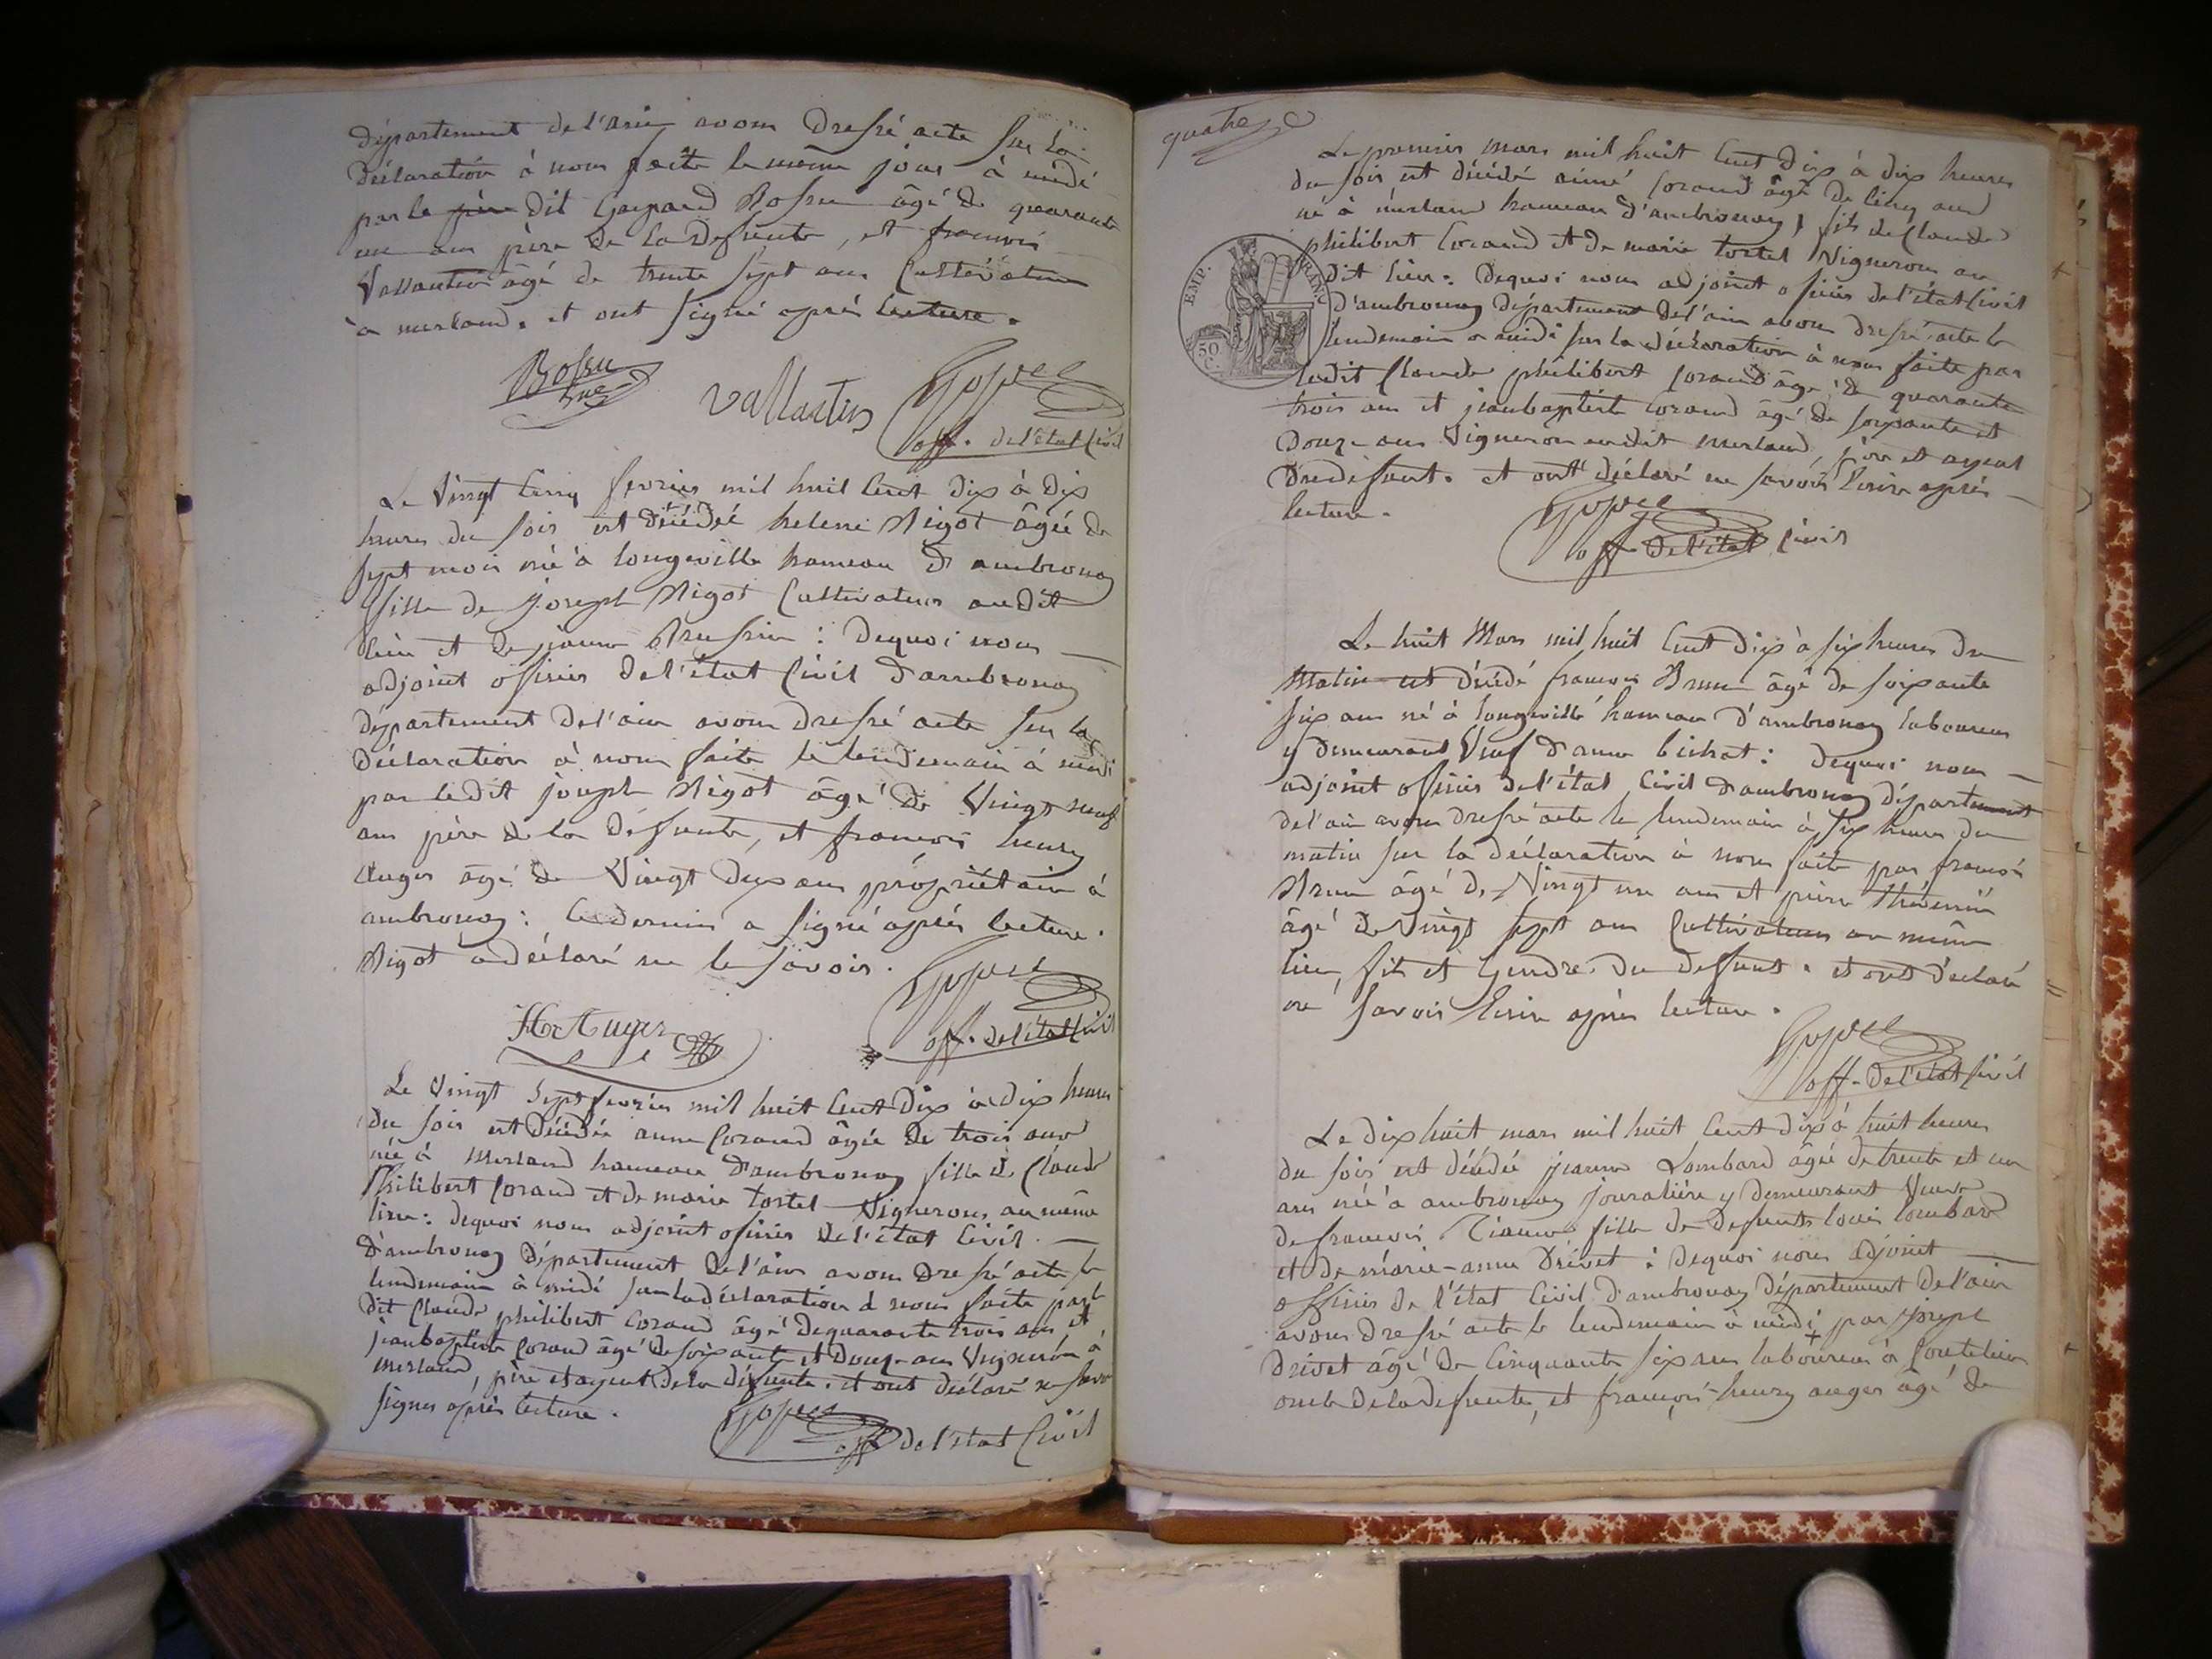 département de l'ain avons dressé acte sur la
déclaration à nous faite le même jour à midi
par le père dit Gaspard Bossu âgé de quarante
un ans père de la defunte, et francois
Vallantin âgé de trente sept ans Cultivateur
à merland. et ont signé après lecture.
Bossu
vallantin
off. de l'état Civil
Le Vingt Cinq fevrier mil huit Cent dix à dix
heures du soir est décédée helene Rigot âgée de
sept mois née à longeville hameau d'ambronay
fille de joseph Rigot Cultivateur audit
lieu et de jeanne : dequoi nous
adjoint officier de l'état Civil d'ambronay
département de l'ain avons dressé acte sur la
déclaration à nous faite le lendemain à midi
par ledit joseph Rigot âgé de Vingt neuf
ans père de la défunte, et francois henry
Auger âgé de Vingt dix ans propriétaire à
ambronay : Ce dernier a signé après lecture.
Rigot a déclaré ne le savoir.
Hr Auger
off. de l'état Civil
Le Vingt Sept fevrier mil huit Cent dix à dix heures
du soir est décédée anne Corand âgée de trois ans
née à Merland hameau d'ambronay fille de Claude
Philibert Corand et de marie tortel Vignerons au même
lieu : dequoi nous adjoint officier de l'état Civil
d'ambronay département de l'ain avons dressé acte le
lendemain à midi sur la déclaration à nous faite par le
dit Claude philibert Corand âgé de quarante trois ans et
jean baptiste Corand âgé de soixante et douze ans Vigneron à
Merland, père et ayeul de la défunte. et ont déclaré ne savoir
signer après lecture.
off de l'état Civil
quatre
Le premier mars mil huit Cent dix à dix heures
du soir est décédé aimé Corand âgé de Cinq ans
né à merland hameau d'ambronay, fils de Claude
philibert Corand et de marie tortel Vignerons au
dit lieu : dequoi nous adjoint officier de l'état Civil
d'ambronay département de l'ain avons dressé acte le
lendemain a midi sur la déclaration à nous faite par
ledit Claude philibert Corand âgé de quarante
trois ans et jean baptiste Corand âgé de soixante et
Douze ans Vigneron audit Merland, père et ayeul
Du defunt. et ont déclaré ne savoir Écrire après
lecture.
EMP. FRANÇ
50
C.
off. de l'état Civil
Le huit Mars mil huit Cent dix à six heures du
Matin est décédé francois Brun âgé de soixante
six ans né à longeville hameau d'ambronay laboureur
y demeurant Veuf d'anne bichat : dequoi nous
adjoint officier de l'état Civil d'ambronay département
de l'ain avons dressé acte le lendemain à six heures du
matin sur la déclaration à nous faite par francois
Brun âgé de Vingt un ans et pierre thévenin
âgé de Vingt sept ans Cultivateurs au même
lieu, fils et Gendre du defunt. et ont déclaré
ne savoir Écrire après lecture.
off. de l'état Civil
Le dix huit mars mil huit Cent dix à huit heures
du soir est décédée jeanne Lombard âgée de trente et un
ans née à ambronay journalière y demeurant Veuve
de francois fille de defunts louis lombard
et de marie-anne Drivet : dequoi nous adjoint
officier de l'état Civil d'ambronay département de l'ain
avons dressé acte le lendemain à midi par joseph
Drivet âgé de Cinquante six ans laboureur à
oncle de la defunte, et francois-henry auger âgé de